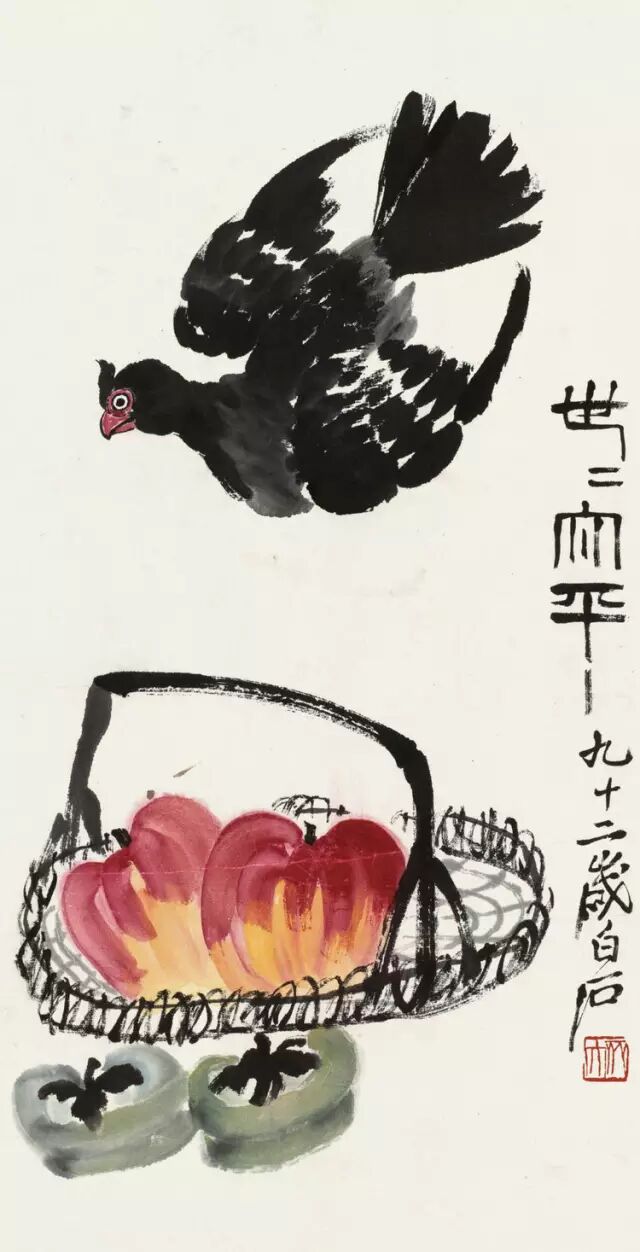 世〻太平九十二歲白石